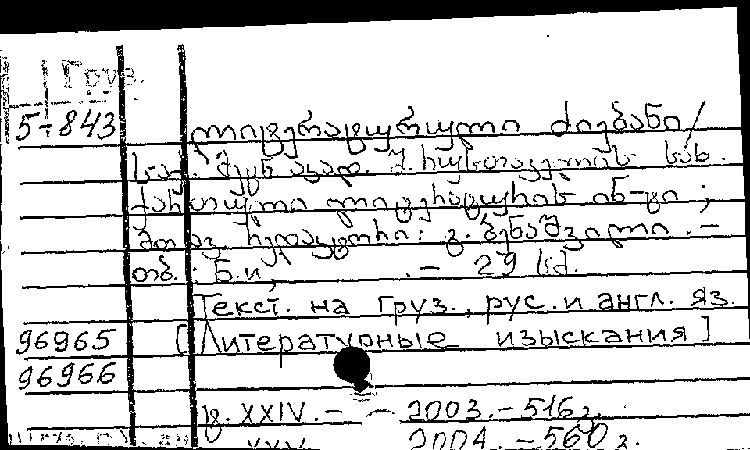 Груз.
5-843
ლიტერატურული ძიებანი/
საქ. მეცნ. აკად. შ. რუსთაველის სახ.
ქართული ლიტერატურის ინ-ტი ;
მთავ. რედაქტორი: გ. ბენაშვილი. –
თბ.: Б.и, . – 29 სმ.
Текст. на груз., рус. и англ. яз.
96965 [Литературные изыскания]
96966
ტ. XXIV. – 2003. – 516 გ.
XXV 2004. – 560 გ.